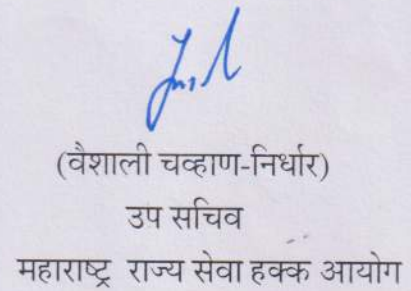 (वैशाली चव्हाण-निर्धार)
उप सचिव
महाराष्ट्र राज्य सेवा हक्क आयोग